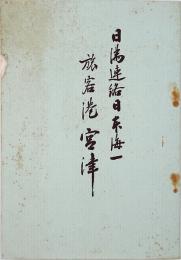 日満連絡日本海一
旅客港宮津